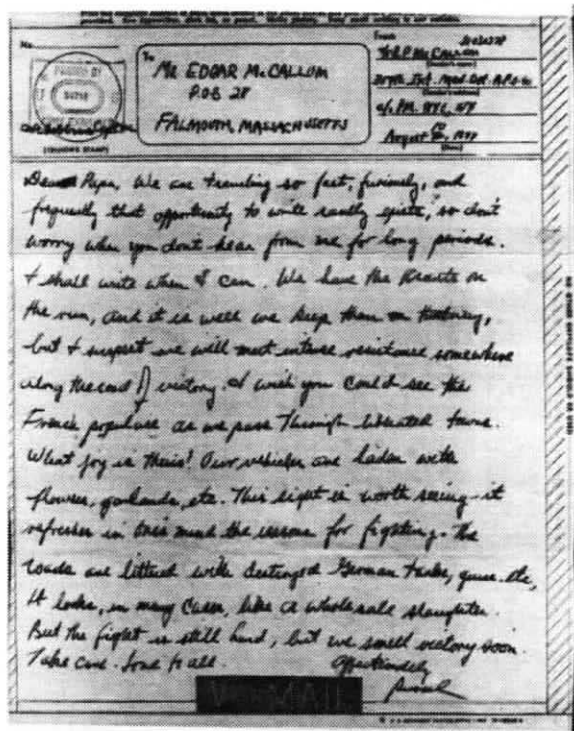 No.
To
Mr. EDGAR McCALLUM
P.O.B 28
FALMOUTH, MASSACHUSETTS
From
(CENSOR'S STAMP)
PASSED BY
(Date)
Dear Papa, We are traveling so fast, furiously, and
frequently that opportunity to write rarely exists, so don't
worry when you don't hear from me for long periods.
I shall write when I can. We have the Krauts on
the run, and it is well we keep them on tottering,
but I suspect we will meet intense resistance somewhere
along the road of victory. I wish you could see the
French populace as we pass through liberated towns.
What joy is theirs! Our vehicles are laden with
flowers, garlands, etc. This sight is worth seeing - it
refreshes in one's mind the reasons for fighting. The
roads are littered with destroyed German tanks, guns etc,
It looks, in many cases, like a wholesale slaughter.
But the fight is still hard, but we smell victory soon.
Take care. Love to all.
Affectionately
V-MAIL